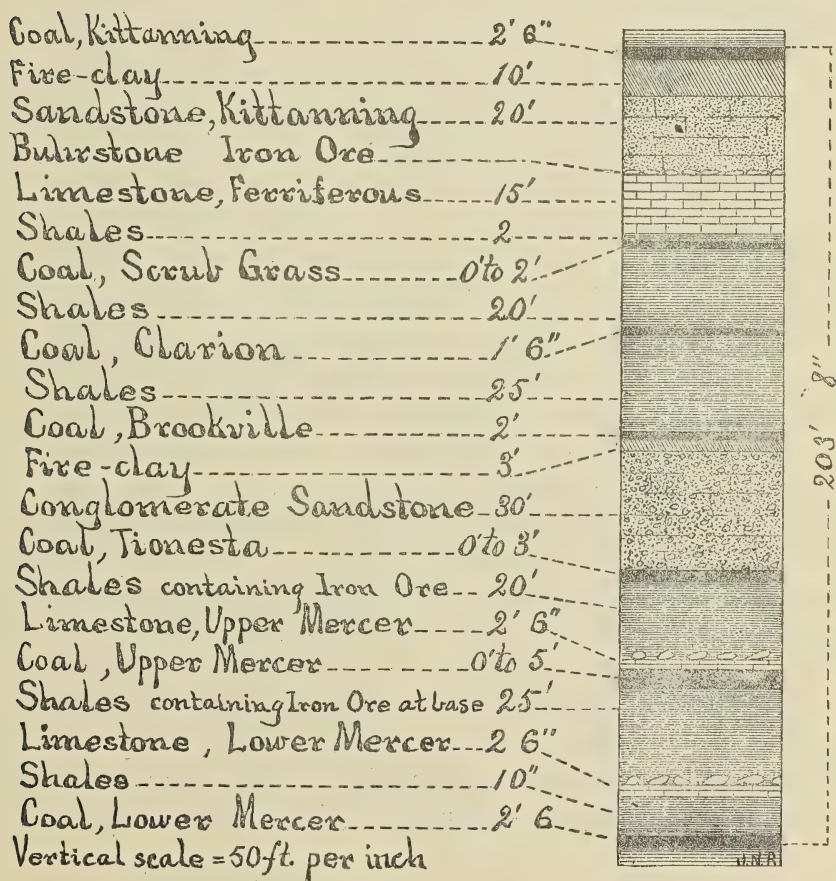 Coal, Kittanning 2' 6"
Fire-clay 10'
Sandstone, Kittanning 20'
Buhrstone Iron Ore
Limestone, Ferriferous 15'
Shales 2
Coal, Scrub Grass 0' to 2'
Shales 20'
Coal, Clarion 1' 6"
Shales 25'
Coal, Brookville 2'
Fire-clay 3'
Conglomerate Sandstone 30'
Coal, Tionesta 0' to 3'
Shales containing Iron Ore 20'
Limestone, Upper Mercer 2' 6"
Coal, Upper Mercer 0' to 5'
Shales containing Iron Ore at base 25'
Limestone, Lower Mercer 2 6"
Shales 10"
Coal, Lower Mercer 2' 6
Vertical scale = 50 ft. per inch
203' 8"
J.N.R.